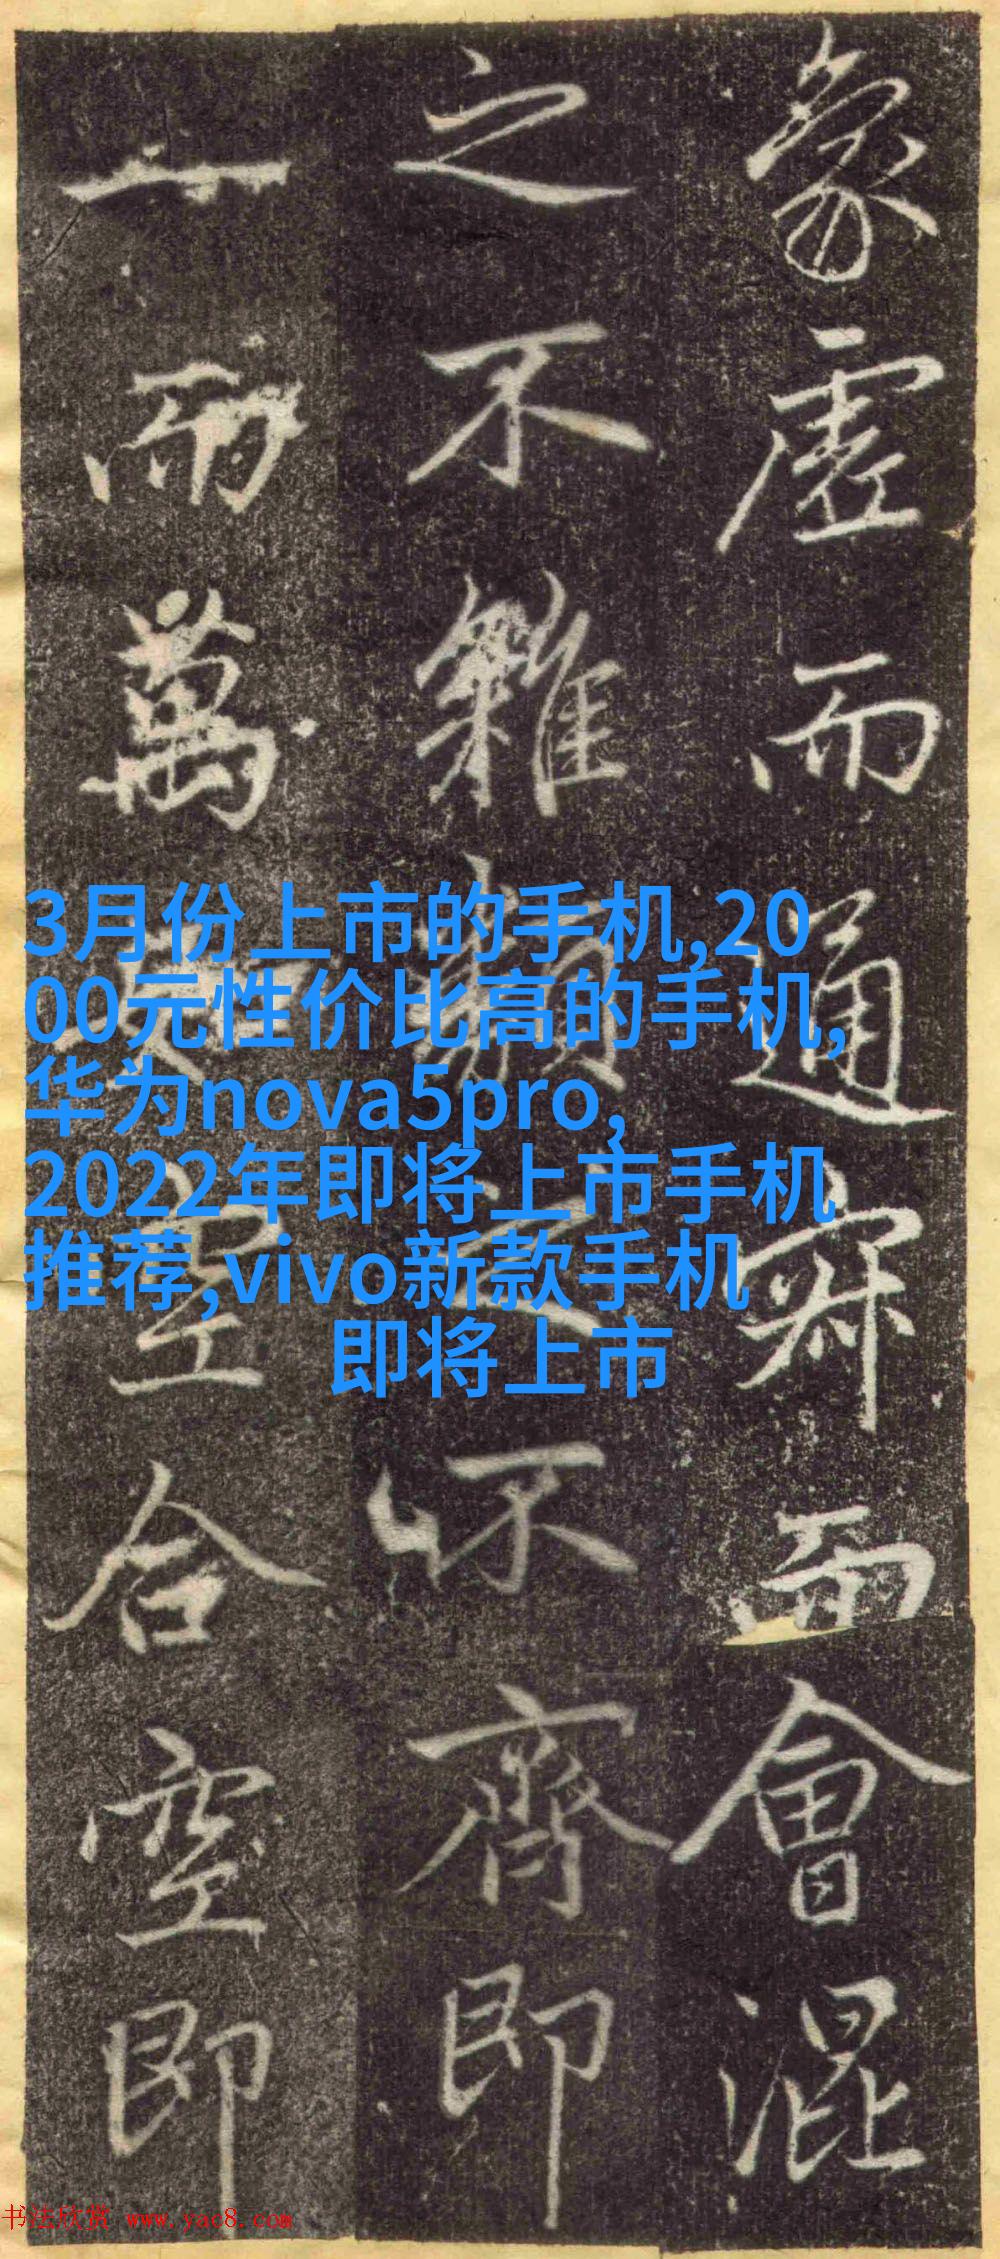 象虛而通寂而會混
之不雜類之不齊即
一而萬空合空即
3月份上市的手机,20
00元性价比高的手机,
华为nova5pro,
2022年即将上市手机
推荐,vivo新款手机
即将上市
书法欣赏 www.yac8.com